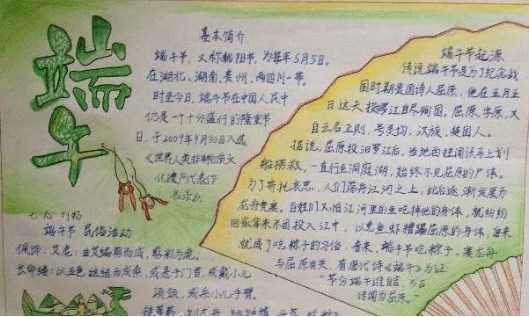 端午
基本简介
端午节,又称端阳节,为每年5月5日。
在湖北、湖南、贵州、四川一带。
时至今日,端午节在中国人民中
仍是一个十分盛行的隆重节
日,于2009年9月30日入选
《世界人类非物质文
化遗产代表作
名录》。
端午节 民俗活动
端午节起源
传说端午节是为了纪念战
国时期爱国诗人屈原,他在五月五
日这天投汨罗江自尽殉国。屈原,字原,又
自云名正则,号灵均,汉族,楚国人。
据说,屈原投汨罗江后,当地百姓闻讯马上划
船捞救,一直行至洞庭湖,始终不见屈原的尸体。
为了寄托哀思,人们荡舟江河之上,此后逐渐发展为
龙舟竞赛。百姓们又怕江河里的鱼吃掉他的身体,就纷纷
回家拿来米团投入江中,以免鱼虾糟蹋屈原的身体,后来
就成了吃粽子的习俗。看来,端午节吃粽子、赛龙舟
与屈原有关,有唐代诗《端午》为证:
"节分端午谁言,万古
传闻为屈原。"